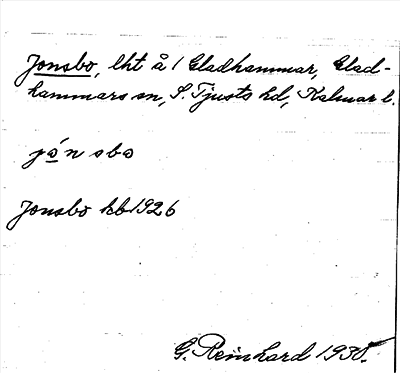 Jonsbo, lht å 1 Gladhammar, Glad-
hammars sn, S. Tjusts hd, Kalmar l.
jó̱nsbo
Jonsbo kb 1926
G. Reinhard 1930.